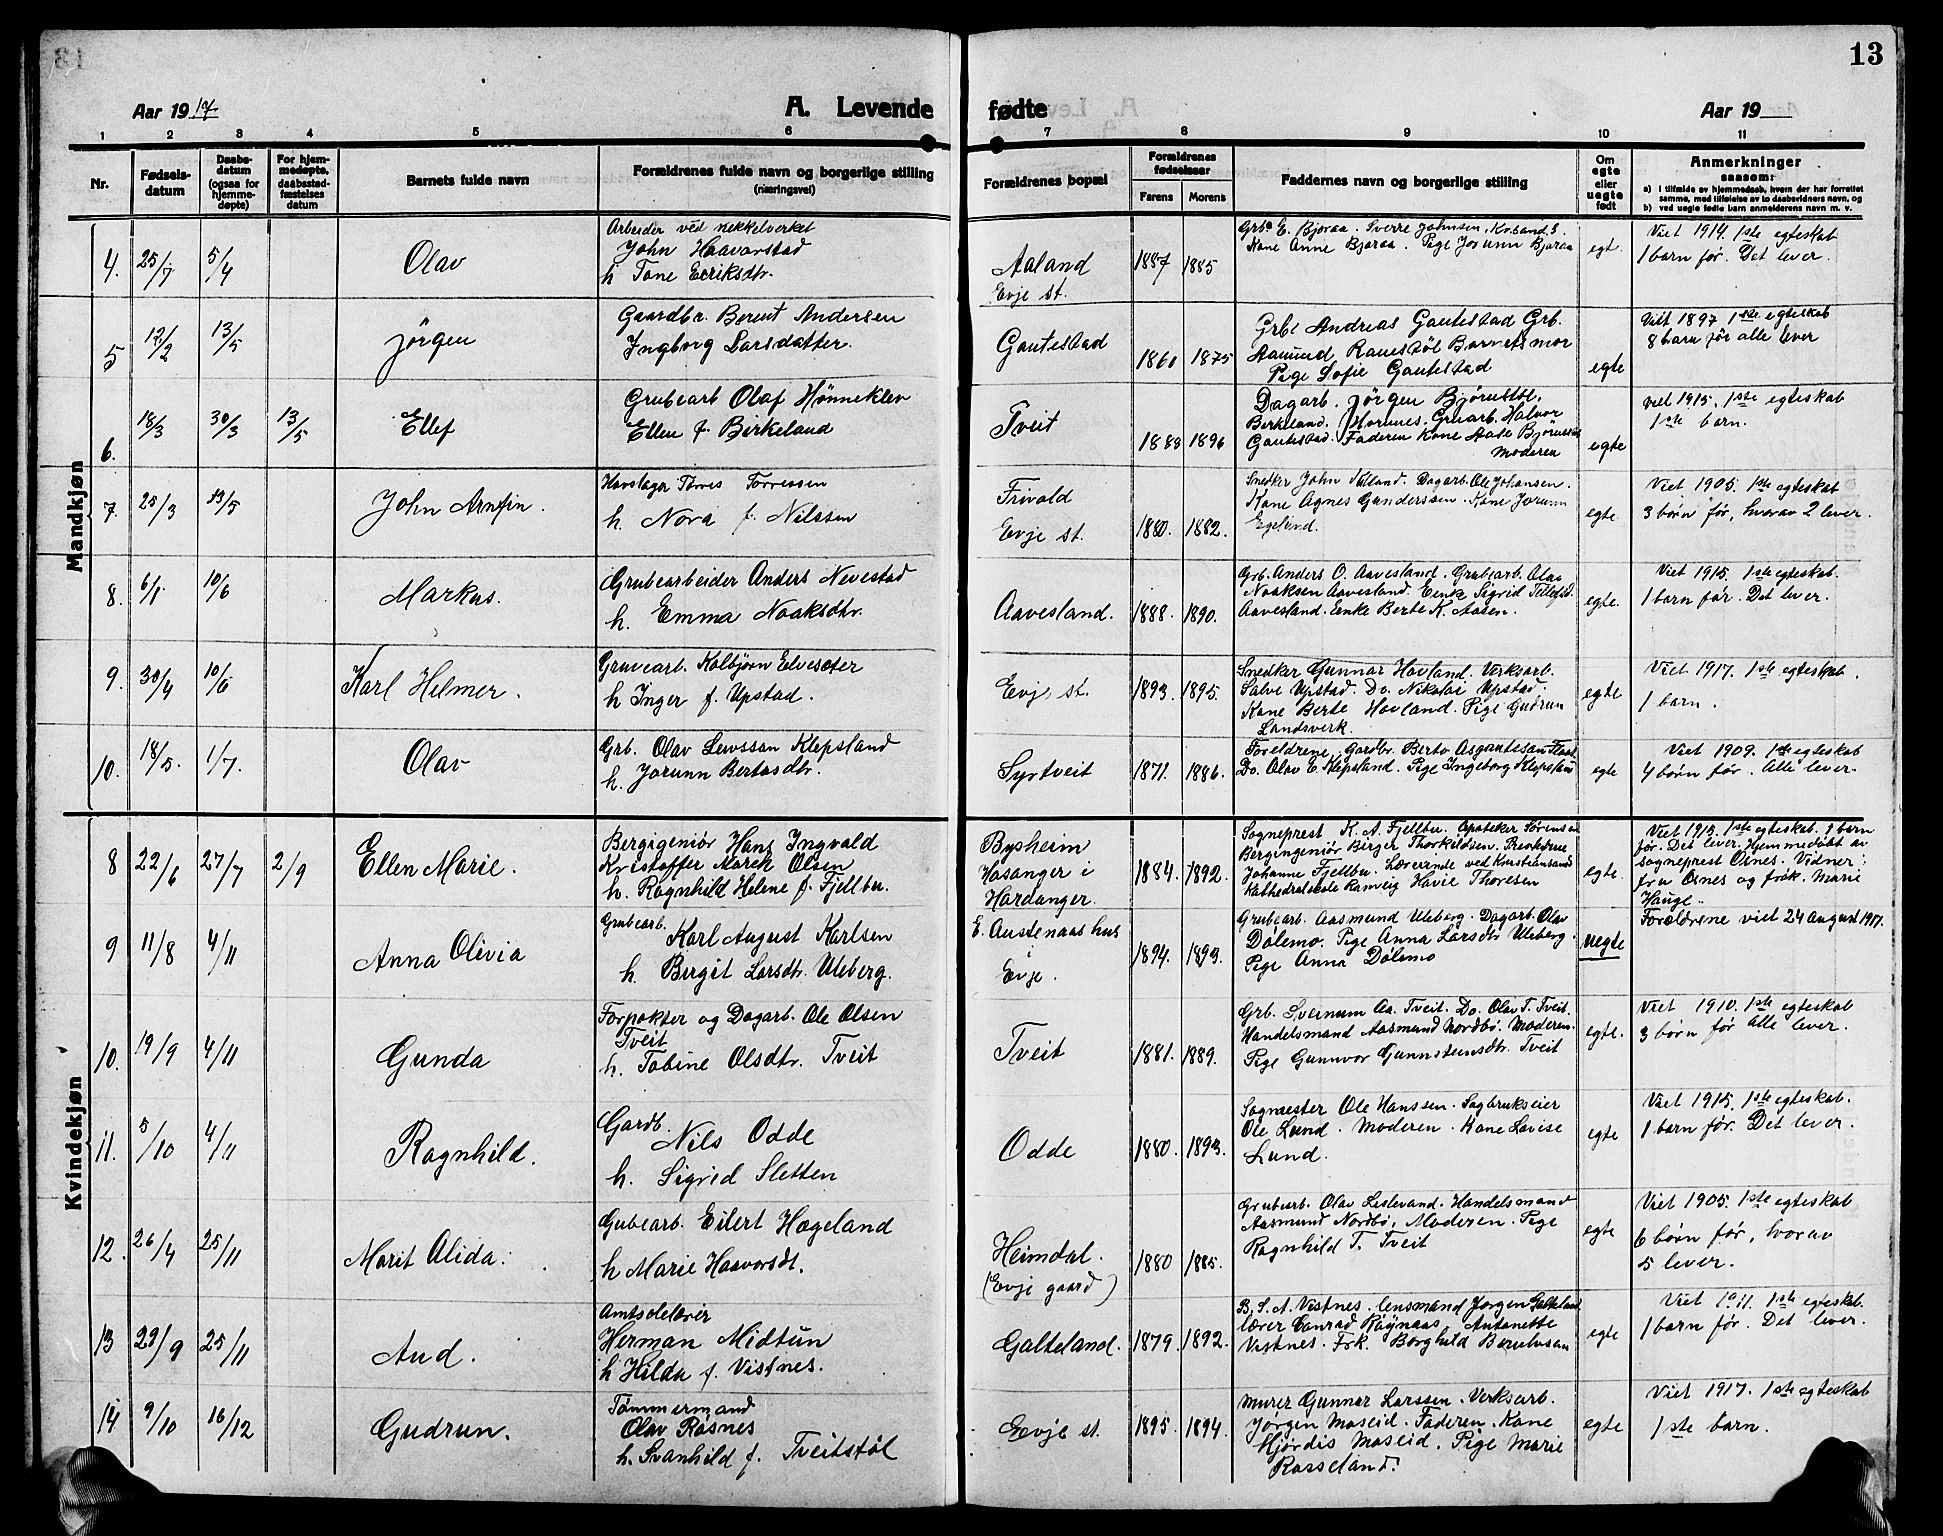 13
Aar 1917
A. Levende fødte
Aar 19
1 2 3 4 5 6 7 8 9 10 11
Nr.
Fødsels-
datum
Daabs-
datum
(ogsaa for
hjemme-
døpte)
For hjem-
medøpte,
daabsstad-
fæstelses
datum
Barnets fulde navn
Forældrenes fulde navn og borgerlige stilling
(næringsvei)
Forældrenes bopæl
Forældrenes
fødselsaar
Farens Morens
Faddernes navn og borgerlige stilling
Om
egte
eller
uegte
født
Anmerkninger
saasom:
a) I tilfælde av hjemmedaab, hvem der har forrettet
samme, med tilføielse av to daabsvidners navn, og
b) ved uegte fødte barn anmelderens navn m. v.
Mandkjøn
4. 25/7 5/4
Olav
Arbeider ved nekkelverket
John Haavorstad
h Tone Eeriksdtr.
Aaland
Evje st.
1887 1885
Grb. E. Bjoraa. Sverre Johnsen, Krsand S.
Kone Anne Bjoraa. Pige Jorunn Bjoraa
egt.
Viet 1914. 1ste egteskab
1 barn før. Det lever.
5 12/2 13/5
Jørgen
Gaardbr. Berent Andersen
Ingborg Larsdatter.
Gautestad
1860 1875
Grbr Andreas Gautestad Grb.
Aamund Ranestøl Barnets mor
Pige Sofie Gautestad
egte
Viet 1897 1ste egteskab
8 barn før alle lever
6. 18/3 30/3 13/5
Ellef
Grubearb Olaf Hønneklev
Ellen f. Birkeland
Tveit
1888 1896
Dagarb. Jørgen Bjørnstøl,
Birkeland, Hornnes. Gruarb. Halvor
Gautestad. Faderen Kone Aase
Moderen
egte
Viet 1915. 1ste egteskab
1ste barn.
7. 25/3 13/5
John Arnfin.
Torres Torressen
h. Nora f. Nilssen
Frivold
Evje st.
1880. 1882.
Snedker John. Dagarb. Ole Johansen.
Kone Agnes Gunderssen. Kone Jorunn
Egeland.
egte.
Viet. 1905. 1ste egteskab
3 børn før, hvorav 2 lever.
8. 6/1 10/6
Markus.
Grubearbeider Anders Nevestad
h. Emma Noaksdtr.
Aavesland.
1888. 1890.
Grb. Anders O. Aavesland. Grubearb. Olav
Noaksen Aavesland. Enke Sigrid Tellefsd.
Aavesland. Enke Berte K. Aasen.
egte.
Viet 1915. 1ste egteskab.
1 barn før. Det lever.
9. 30/4 10/6
Karl Helmer.
Gruvearb. Kolbjørn Elveseter
h Inger f. Upstad.
Evje st.
1893. 1895.
Snedker Gunnar Hovland. Verksarb.
Salve Upstad. Do. Nikolai Upstad.
Kone Berte Hovland. Pige Gudrun
Landsverk.
egte
Viet 1917. 1ste egteskab.
1 barn.
10. 18/5. 1/7.
Olav
Grb. Olav Klepsland
h. Jorunn Bertosdtr.
Syrtveit
1871. 1886.
Foreldrene. Gardbr. Berto
Do. Olav E. Klepsland. Pige Ingeborg Klepsland
egte
Viet 1909. 1ste egteskab
4 børn før. Alle lever.
Kvindekjøn
8 22/6 27/7 2/9
Ellen Marie.
Bergigeniör Hans Ingvald
Kristoffer Marek Olsen
h. Ragnhild Helene f. Fjellbu.
Bysheim
Hosanger i
Hardanger.
1884. 1892.
Sogneprest K. A. Fjellbu. Apoteker Sørensen
Bergingeniör Birger Thorkildsen. Prestefrue
Johanne Fjellbu. Lærerinde ved Kristiansand
Kathedralskole Ranveig Havie Thoresen
egte.
Viet 1915. 1ste egteskab. 1 barn
før. Det lever. Hjemmedøbt av
sogneprest Osnes. Vidner:
fru Osnes og frøk. Marie
Hauge.
9 11/8 4/11
Anna Olivia
Grubearb.
Karl August Karlsen
h. Bergit Larsdtr. Uleberg.
E. Austenaas hus
Evje.
1894. 1893.
Grubearb. Aasmund Uleberg. Dagarb. Olav
Dølemo. Pige Anna Larsdtr Uleberg.
Pige Anna Dølemo
uegte
Forældrene viet 24 august 1917.
10. 19/9 4/11
Gunda
Forpakter og Dagarb. Ole Olsen
Tveit
h. Tobine Olsdtr. Tveit
Tveit
1881. 1889.
Grb. Aa. Tveit. Do. Olav T. Tveit.
Handelsmand Aasmund Nordbø. Moderen.
Pige Gunnvor Gunnsteinsdtr. Tveit
egte.
Viet 1910. 1ste egteskab
3 børn før Alle lever.
11. 5/10 4/11
Ragnhild.
Gardb.
Nils Odde
h. Sigrid Sletten
Odde
1880. 1893.
Sagmester Ole Hanssen. Sagbrukseier
Ole Lund. Moderen. Kone Lovise
Lund.
egte
Viet 1915. 1ste egteskab.
1 barn før. Det lever.
12. 26/4 25/11
Marit Alida.
Gubearb. Eilert Hægeland
h Marie Haavorsdt.
Heimdal.
(Evje gaard)
1880 1885.
Grubearb. Olav Lislevand. Handelsmand
Aasmund Nordbø, Moderen. Pige
Ragnhild T. Tveit
egte
Viet 1905. 1ste egteskab
6 børn før, hvorav
5 lever.
13 29/9 25/11
Aud.
Amtsolelærer
Herman Midtun
h Hilda f. Vistnes.
Galteland.
1879. 1892.
B. S. A. Vistnes. lensmand Jørgen Galteland
lærer Conrad Røynaas Antonette
Vistnes. Frk. Borghild
egte
Viet 1911. 1ste egteskab.
1 barn før. Det lever.
14 9/10 16/12
Gudrun.
Tømmermand
Olav Røsnes
h. Svanhild f. Tveitstøl
Evje st.
1895. 1894.
Murer Gunnar Larssen. Verksarb.
Jørgen Moseid. Faderen. Kone
Hjördis Moseid. Pige Marie
Rosseland.
egte
Viet 1917. 1ste egteskab
1ste barn.